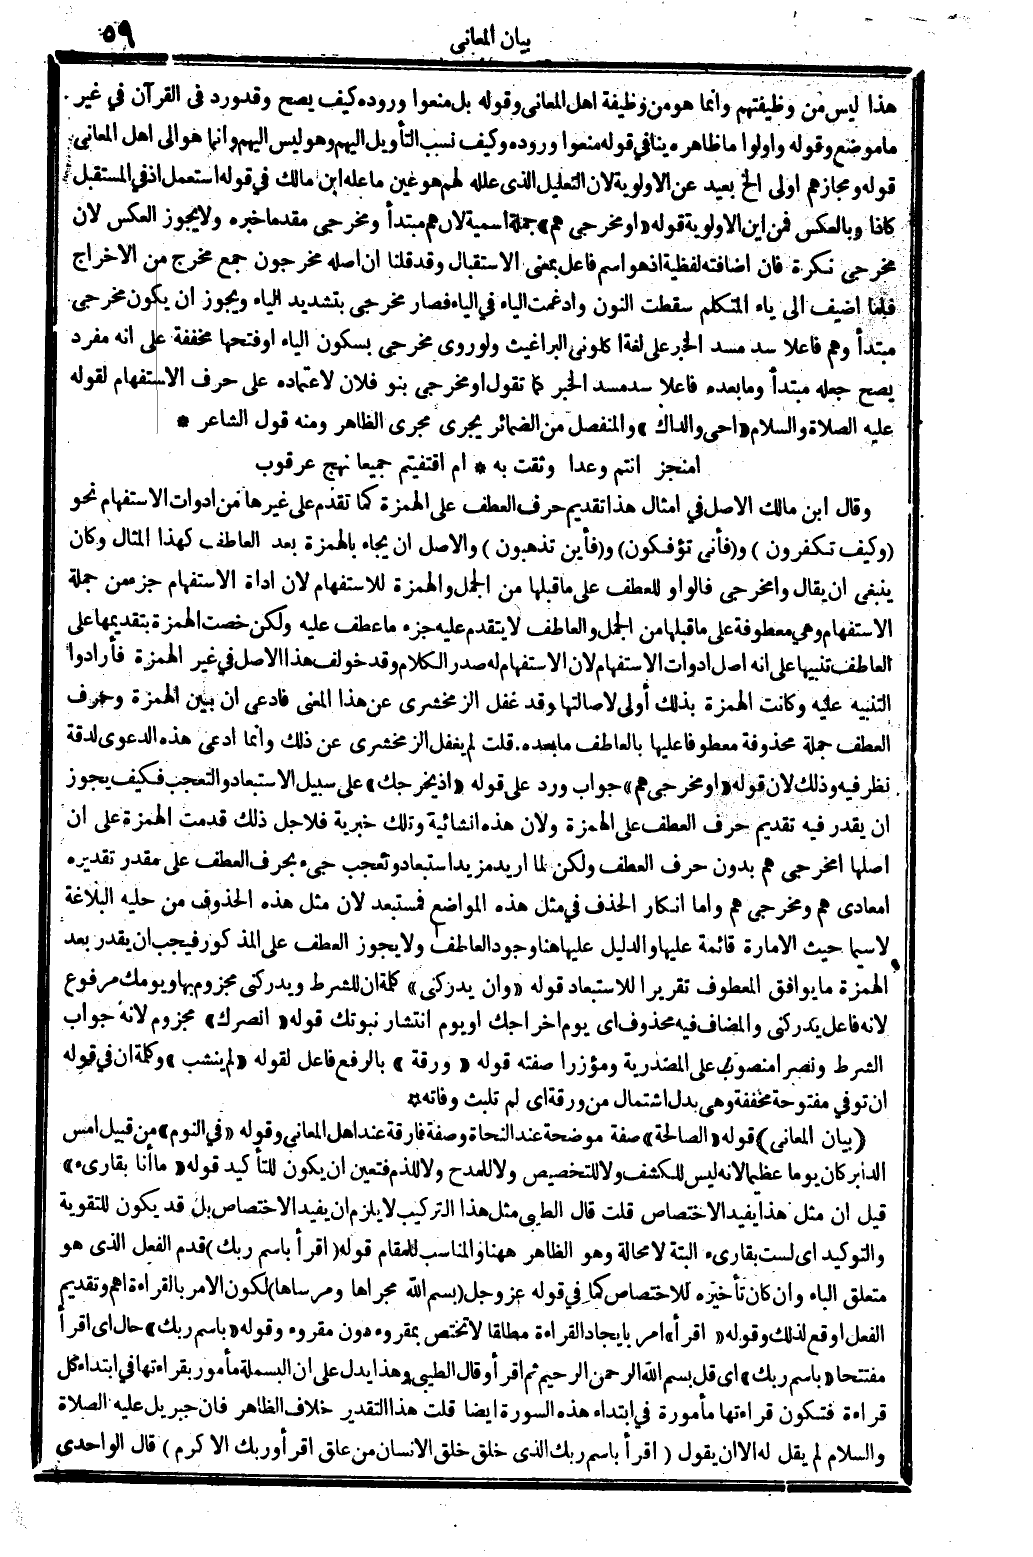 بيان المعانى
٥٩
هذا ليس من وظيفتهم وانما هو من وظيفة اهل المعانى وقوله بل منعوا وروده كيف يصح وقد ورد فى القرآن في غير
ما موضع وقوله واولوا ما ظاهره ينافي قوله منعوا وروده وكيف نسب التأويل اليهم وهو ليس اليهم وانما هو الى اهل المعانى
قوله ومجازهم اولى الخ بعيد عن الاولوية لان التعليل الذى علله لهم هو عين ما عله ابن مالك في قوله استعمل اذ في المستقبل
كاذا وبالعكس فمن اين الاولوية قوله «او مخرجى هم» جملة اسمية لان هم مبتدأ ومخرجى مقدما خبره ولا يجوز العكس لان
مخرجى نكرة فان اضافته لفظية اذ هو اسم فاعل بمعنى الاستقبال وقد قلنا ان اصله مخرجون جمع مخرج من الاخراج
فلما اضيف الى ياء المتكلم سقطت النون وادغمت الياء في الياء فصار مخرجى بتشديد الياء ويجوز ان يكون مخرجى
مبتدأ وهم فاعلا سد مسد الخبر على لغة اكلونى البراغيث ولو روى مخرجى بسكون الياء او فتحها مخففة على انه مفرد
يصح جعله مبتدأ وما بعده فاعلا سد مسد الخبر كما تقول او مخرجى بنو فلان لاعتماده على حرف الاستفهام لقوله
عليه الصلاة والسلام «احى والداك» والمنفصل من الضمائر يجرى مجرى الظاهر ومنه قول الشاعر *
امنجز انتم وعدا وثقت به * ام اقتفيتم جميعا نهج عرقوب
وقال ابن مالك الاصل في امثال هذا تقديم حرف العطف على الهمزة كما تقدم على غيرها من ادوات الاستفهام نحو
(وكيف تكفرون) و(فأنى تؤفكون) و(فأين تذهبون) والاصل ان يجاء بالهمزة بعد العاطف كهذا المثال وكان
ينبغى ان يقال وامخرجى فالواو للعطف على ما قبلها من الجمل والهمزة للاستفهام لان اداة الاستفهام جزء من جملة
الاستفهام وهى معطوفة على ما قبلها من الجمل والعاطف لا يتقدم عليه جزء ما عطف عليه ولكن خصت الهمزة بتقديمها على
العاطف تنبيها على انه اصل ادوات الاستفهام لان الاستفهام له صدر الكلام وقد خولف هذا الاصل في غير الهمزة فأرادوا
التنبيه عليه وكانت الهمزة بذلك أولى لاصالتها وقد غفل الزمخشرى عن هذا المعنى فادعى ان بين الهمزة وحرف
العطف جملة محذوفة معطوفا عليها بالعاطف ما بعده. قلت لم يغفل الزمخشرى عن ذلك وانما ادعى هذه الدعوى لدقة
نظر فيه وذلك لان قوله «او مخرجى هم» جواب ورد على قوله «اذ يخرجك» على سبيل الاستبعاد والتعجب فكيف يجوز
ان يقدر فيه تقديم حرف العطف على الهمزة ولان هذه انشائية وتلك خبرية فلاجل ذلك قدمت الهمزة على ان
اصلها امخرجى هم بدون حرف العطف ولكن لما اريد مزيد استبعاد وتعجب جىء بحرف العطف على مقدر تقديره
امعادى هم ومخرجى هم واما انكار الحذف في مثل هذه المواضع فمستبعد لان مثل هذه الحذوف من حليه البلاغة
لا سيما حيث الامارة قائمة عليها والدليل عليها هنا وجود العاطف ولا يجوز العطف على المذكور فيجب ان يقدر بعد
الهمزة ما يوافق المعطوف تقريرا للاستبعاد قوله «وان يدركنى» كلمة ان للشرط ويدركنى مجزوم بها ويومك مرفوع
لانه فاعل يدركنى والمضاف فيه محذوف اى يوم اخراجك او يوم انتشار نبوتك قوله «انصرك» مجزوم لانه جواب
الشرط ونصرا منصوب على المصدرية ومؤزرا صفته قوله «ورقة» بالرفع فاعل لقوله «لم ينشب» وكلمة ان في قوله
ان توفي مفتوحة مخففة وهى بدل اشتمال من ورقة اى لم تلبث وفاته *
(بيان المعانى) قوله «الصالحة» صفة موضحة عند النحاة وصفة فارقة عند اهل المعانى وقوله «في النوم» من قبيل امس
الدابر كان يوما عظيما لانه ليس للكشف ولا للتخصيص ولا للمدح ولا للذم فتعين ان يكون للتأكيد قوله «ما أنا بقارىء»
قيل ان مثل هذا يفيد الاختصاص قلت قال الطيبى مثل هذا التركيب لا يلزم ان يفيد الاختصاص بل قد يكون للتقوية
والتوكيد اى لست بقارىء البتة لا محالة وهو الظاهر ههنا والمناسب للمقام قوله (اقرأ باسم ربك) قدم الفعل الذى هو
متعلق الباء وان كان تأخيره للاختصاص كما في قوله عز وجل (بسم الله مجراها ومرساها) لكون الامر بالقراءة اهم وتقديم
الفعل اوقع لذلك وقوله «اقرأ» امر بايجاد القراءة مطلقا لا تختص بمقروء دون مقروء وقوله «باسم ربك» حال اى اقرأ
مفتتحا «باسم ربك» اى قل بسم الله الرحمن الرحيم ثم اقرأ وقال الطيبى وهذا يدل على ان البسملة مأمور بقراءتها في ابتداء كل
قراءة فتكون قراءتها مأمورة في ابتداء هذه السورة ايضا قلت هذا التقدير خلاف الظاهر فان جبريل عليه الصلاة
والسلام لم يقل له الا ان يقول (اقرأ باسم ربك الذى خلق خلق الانسان من علق اقرأ وربك الاكرم) قال الواحدى